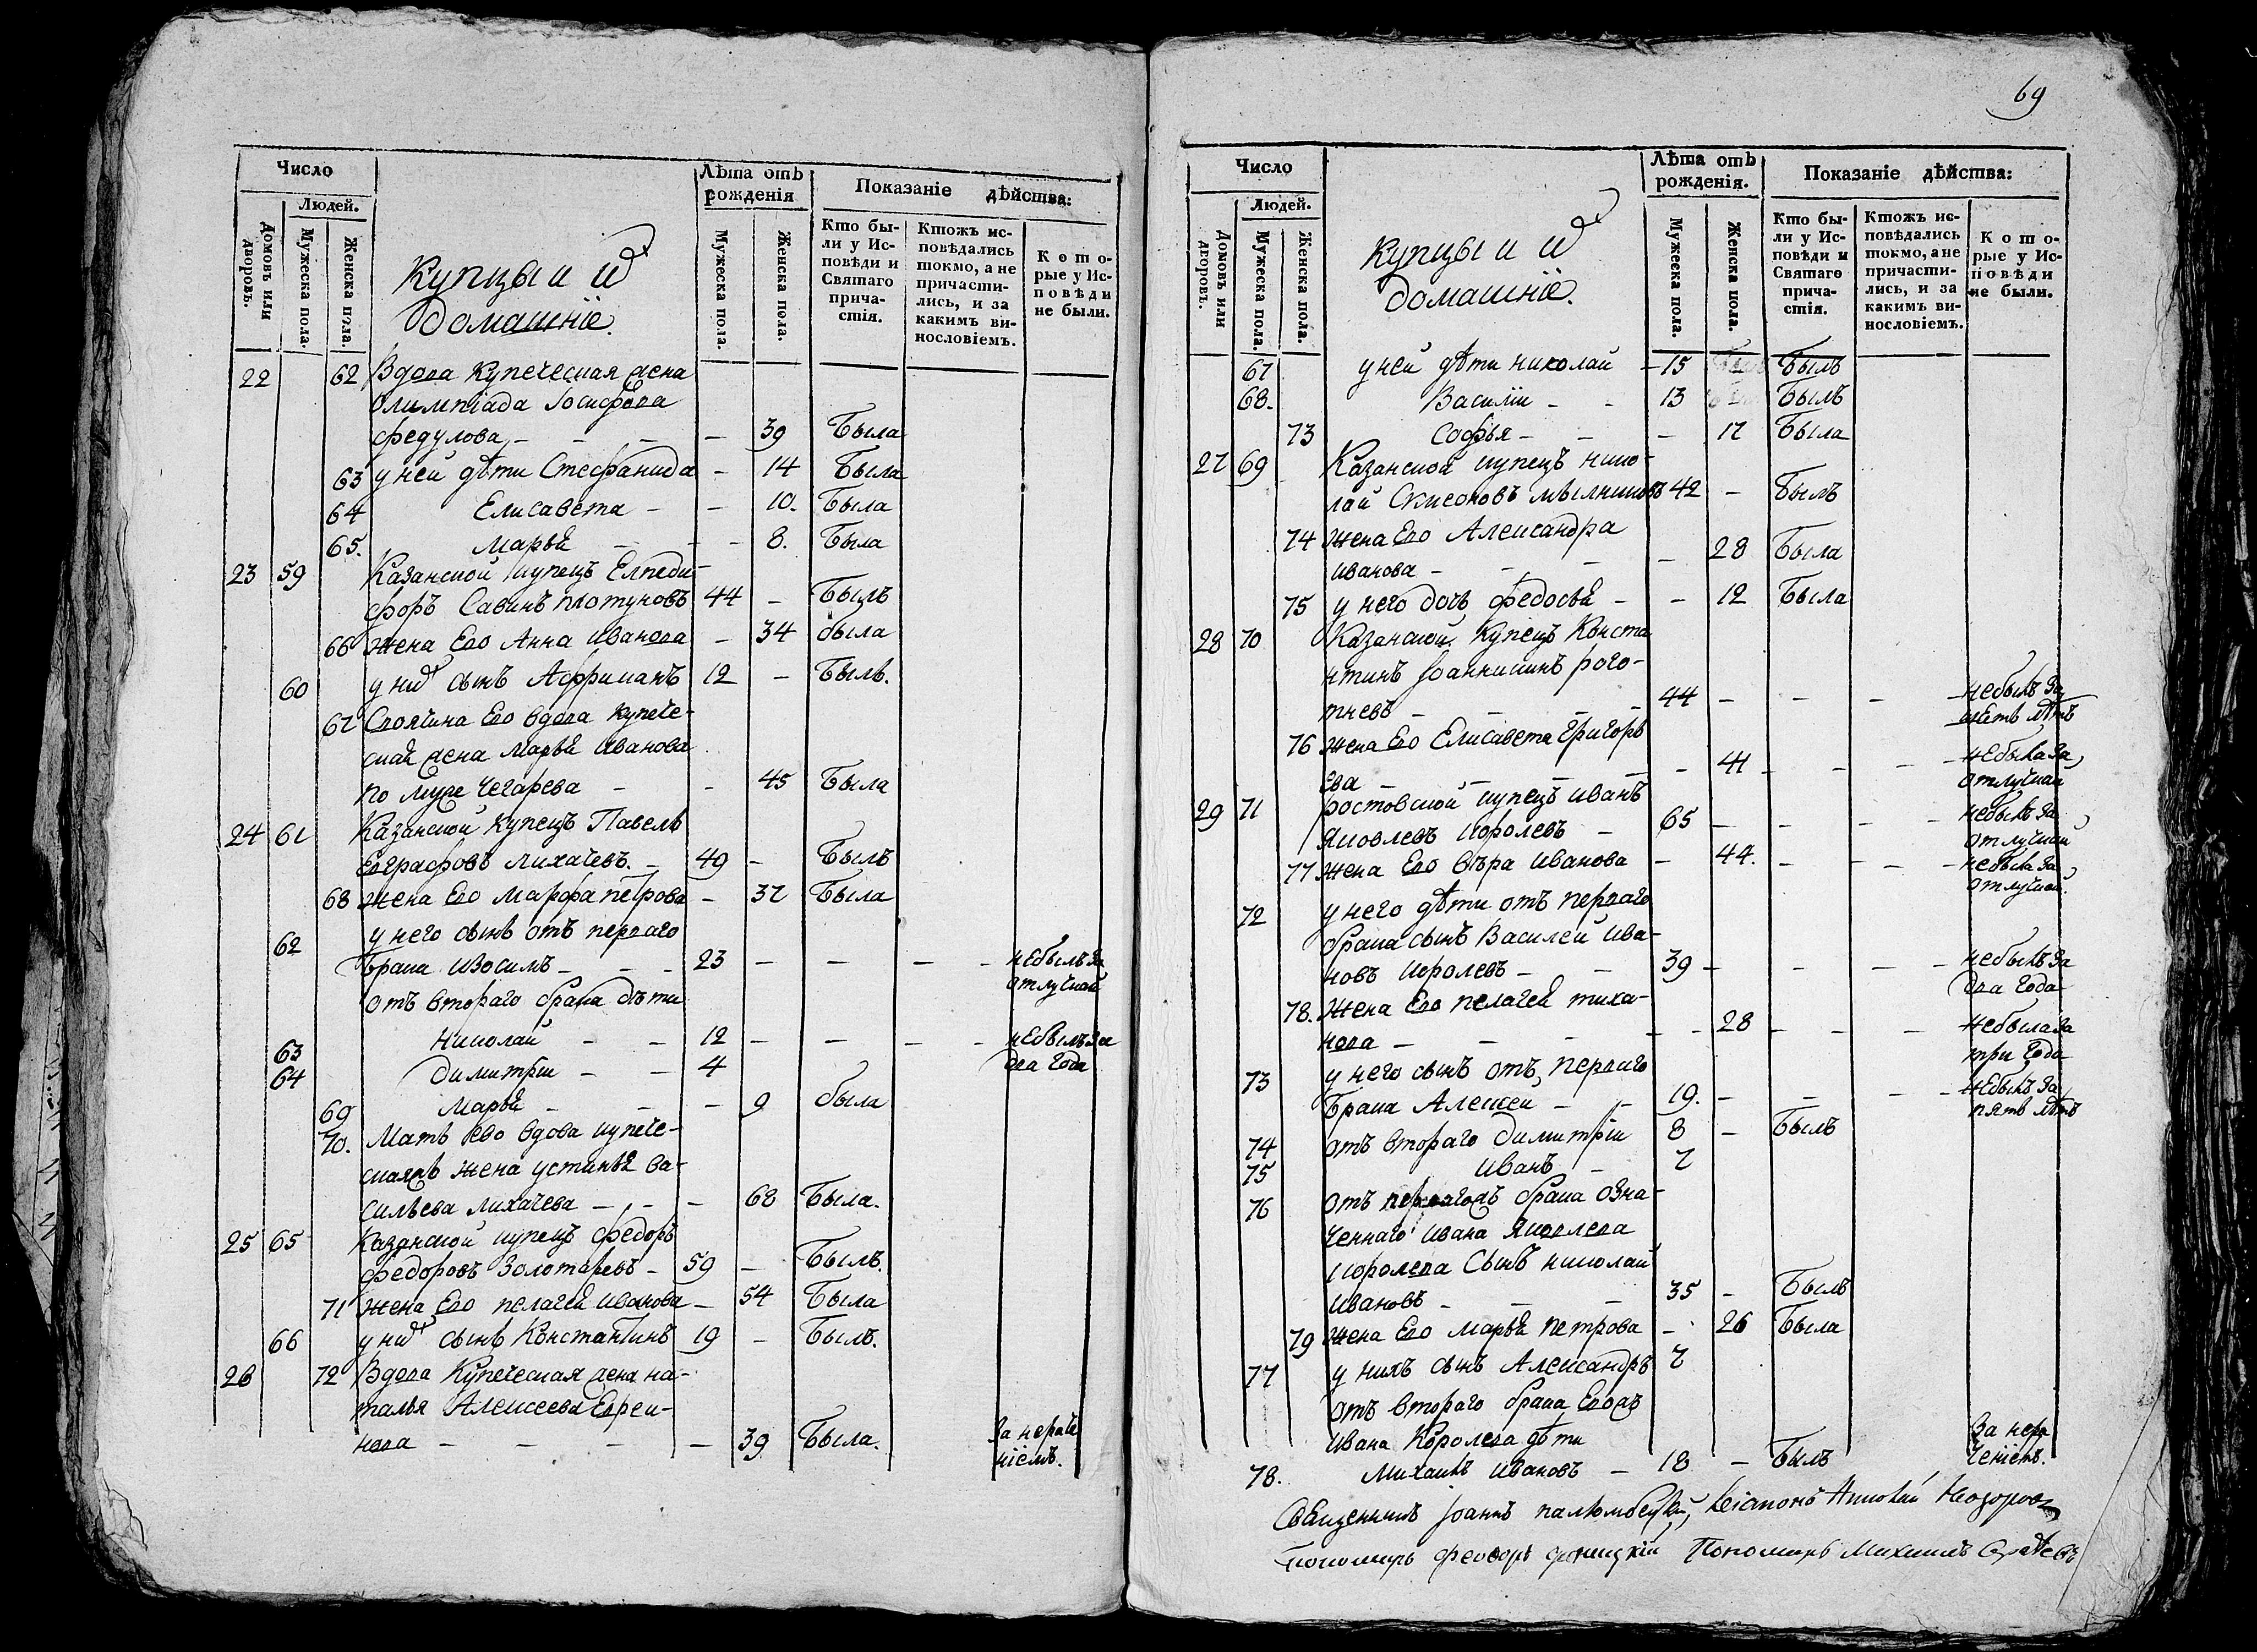 Число
Лѣта отъ рожденія
Показаніе дѣйства:
Людей.
Домовъ или дворовъ.
Мужеска пола.
Женска пола.
Купцы и ихъ
домашніе.
Мужеска пола.
Женска пола.
Кто были у Исповѣди и Святаго причастія.
Ктожъ исповѣдались токмо, а не причастились, и за какимъ винословіемъ.
Которые у Исповѣди не были.
22 62 Вдова купеческая жена
Олимпіада Іосифова
Федулова - - - 39 Была
63 у ней дѣти Стефанида - 14 Была
64 Елисавета - - 10. Была
65. Марья - - 8. Была
23 59 Казанской купецъ Елпеди-
форъ Савинъ Плотуновъ 44 - Былъ
66 Жена Ево Анна Иванова - 34 была
60 у них сынъ Африканъ 12 - Былъ.
67 Своячина Ево вдова купече-
ская жена Марья Иванова
по муже Чегарева - - 45 Была
24 61 Казанской купецъ Павелъ
Евграфовъ Лихачевъ. - 49 - Былъ
68 Жена Ево Марфа Петрова - 37 Была
62 у него сынъ отъ перваго
брака Изосимъ - - - 23 - - - - небылъ за
отлучкай
отъ втораго брака дѣти
63 Николай - - 12 - - - - небылъ за
два года
64 Димитрій - - 4
69 Марья - - - 9 была
70. Мать ево вдова купече-
скаяжъ жена Устинья Ва-
сильева Лихачева - - - 68 Была.
25 65 Казанской купецъ Федоръ
Федоровъ Золотаревъ - 59 - Былъ.
71 Жена Ево Пелагея Иванова - 54 Была
66 у них сынъ Константинъ 19 - Былъ.
26 72 Вдова купеческая жена На-
талья Алексеева Евреи-
нова - - - - - 39 Была.
За нераче
ніемъ.
69
Число
Лѣта отъ рожденія.
Показаніе дѣйства:
Людей.
Домовъ или дворовъ.
Мужеска пола.
Женска пола.
Купцы и ихъ
домашніе.
Мужеска пола.
Женска пола.
Кто были у Исповѣди и Святаго причастія.
Ктожъ исповѣдались токмо, а не причастились, и за какимъ винословіемъ.
Которые у Исповѣди не были.
67 у ней дѣти Николай - 15 Былъ
68. Василіи - - 13 Былъ
73 Софья - - - 17 Была
27 69 Казанской купецъ Нико-
лай Симеоновъ Мыльниковъ 42 - Былъ
74 Жена Ево Александра
Иванова - - - - 28 Была
75 у него дочь Федосья - - 12 Была
28 70 Казанской купецъ Конста
нтинъ Іоанникинъ Рого-
тневъ - - - - 44 - - - небылъ за
шесть лѣтъ
76 Жена Ево Елисавета Григорь
ева - - - - - 41 - - - - небыла за
отлучкай
29 71 Ростовской купецъ Иванъ
Яковлевъ Королевъ - 65 - - - - небылъ за
отлучкай
77 Жена Ево Вѣра Иванова - 44. - - - небыла за
отлучкай.
72 у него дѣти отъ перваго
брака сынъ Василей Ива-
новъ Королевъ - - 39 - - - - небылъ за
два года
78. Жена Ево Пелагея Тиха-
нова - - - - - 28 - - - небыла за
три года
73 у него сынъ отъ перваго
брака Алексеи - - 19. - - - - небылъ за
пять лѣтъ
74 отъ втораго Димитріи 8 - Былъ
75 Иванъ - 7
76 отъ перваго брака озна-
ченнаго Ивана Яковлева
Королева Сынъ Николай
Ивановъ - - - 35 - Былъ
79 Жена Ево Марья Петрова - 26 Была
77 у нихъ сынъ Александръ 7
отъ втораго брака Евожъ
Ивана Королева дѣти
78. Михаилъ Ивановъ - 18 - Былъ
За нера
ченіемъ.
Священникъ Іоаннъ
Пономарь Феодоръ Пономарь Михаилъ